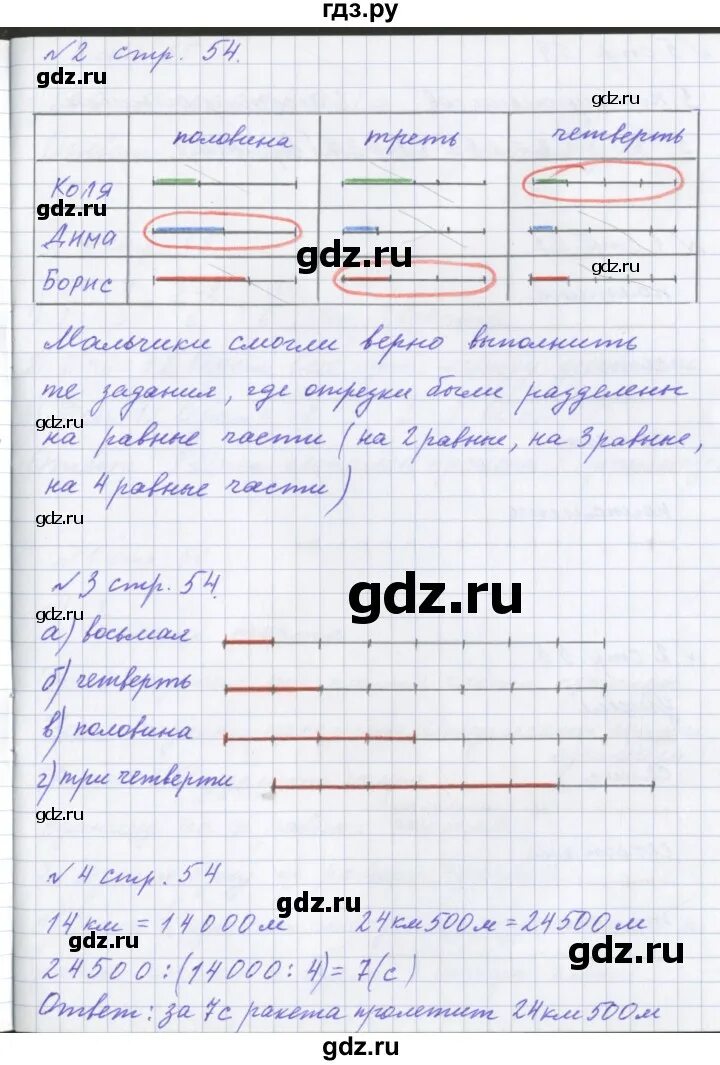 гдз.ру
№2 стр. 54.
gdz.ru
gdz.ru
половина треть четверть
Коля
gdz.ru
Дима
gdz.ru
gdz.ru
Борис
Мальчики смогли верно выполнить
те задания, где отрезки были разделены
gdz.ru
на равные части (на 2 равные, на 3 равные,
на 4 равные части)
gdz.ru
№3 стр. 54.
gdz.ru
gdz.ru
а) восьмая
б) четверть
в) половина
г) три четверти
gdz.ru
№4 стр. 54
gdz.ru
14 км = 14000 м 24 км 500 м = 24500 м
gdz.ru
gdz.ru
24500 : (14000 : 4) = 7 (с)
Ответ: за 7 с ракета пролетит 24 км 500 м
gdz.ru